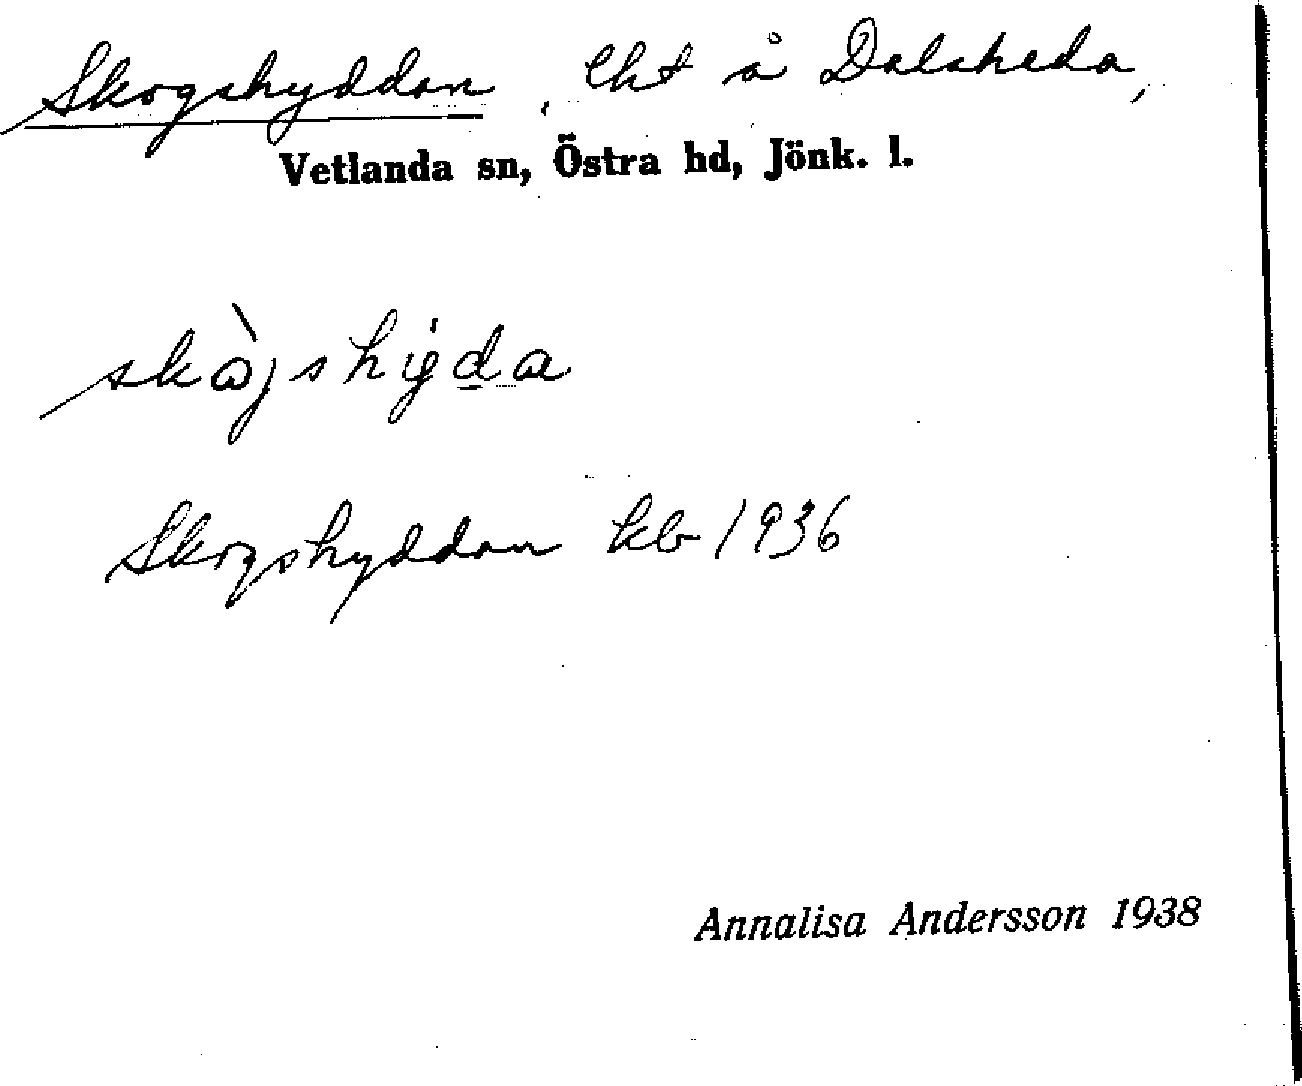 Skogshyddan, lht å Dalsheda,
Vetlanda sn, Östra hd, Jönk. l.
Skogshyddan kb 1936
Annalisa Andersson 1938